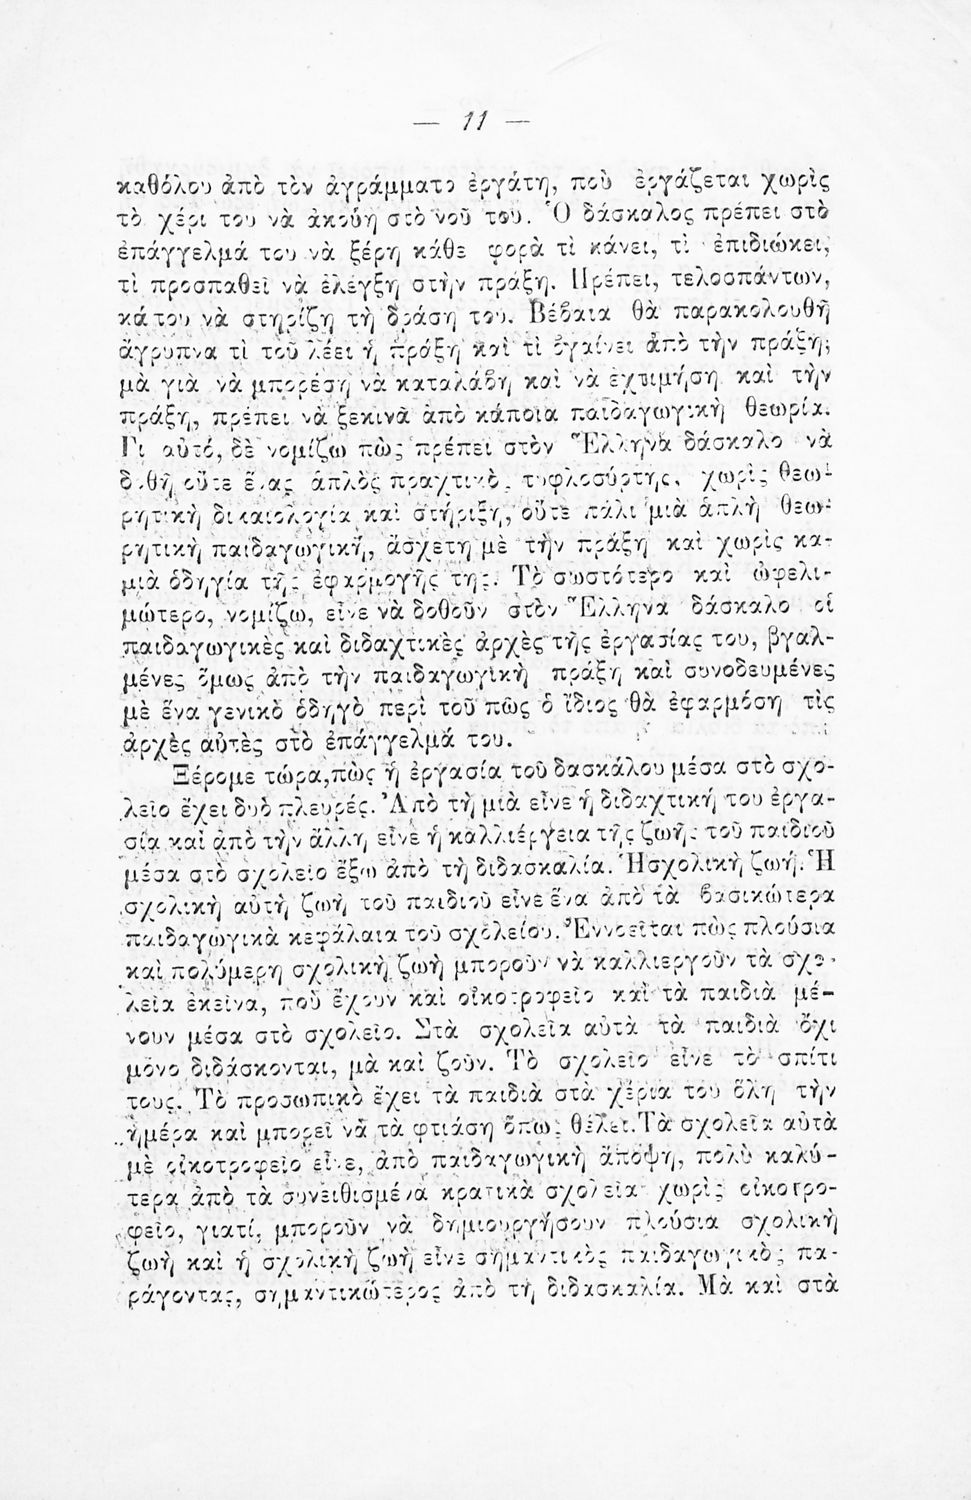 — 11 —
καθόλου ἀπὸ τὸν ἀγράμματο ἐργάτη, ποὺ ἐργάζεται χωρὶς
τὸ χέρι του νὰ ἀκούῃ στὸ νοῦ του. Ὁ δάσκαλος πρέπει στὸ
ἐπάγγελμά του νὰ ξέρῃ κάθε φορὰ τὶ κάνει, τὶ ἐπιδιώκει,
τὶ προσπαθεῖ νὰ ἐλέγξῃ στὴν πράξη. Πρέπει, τελοσπάντων,
κάπου νὰ στηρίζῃ τὴ δράση του. Βέβαια θὰ παρακολουθῇ
ἄγρυπνα τὶ τοῦ λέει ἡ πράξη καὶ τὶ βγαίνει ἀπὸ τὴν πράξη;
μὰ γιὰ νὰ μπορέσῃ νὰ καταλάβῃ καὶ νὰ ἐχτιμήσῃ καὶ τὴν
πράξη, πρέπει νὰ ξεκινᾶ ἀπὸ κάποια παιδαγωγικὴ θεωρία.
Γι αὐτό, δὲ νομίζω πὼς πρέπει στὸν Ἕλληνα δάσκαλο νὰ
δοθῇ οὔτε ἕνας ἁπλὸς πραχτικὸς τυφλοσύρτης, χωρὶς θεω-
ρητικὴ δικαιολογία καὶ στήριξη, οὔτε πάλι μιὰ ἁπλὴ θεω-
ρητικὴ παιδαγωγική, ἄσχετη μὲ τὴν πράξη καὶ χωρὶς κα-
μιὰ ὁδηγία τῆς ἐφαρμογῆς της. Τὸ σωστότερο καὶ ὠφελι-
μώτερο, νομίζω, εἶνε νὰ δοθοῦν στὸν Ἕλληνα δάσκαλο οἱ
παιδαγωγικὲς καὶ διδαχτικὲς ἀρχὲς τῆς ἐργασίας του, βγαλ-
μένες ὅμως ἀπὸ τὴν παιδαγωγικὴ πράξη καὶ συνοδευμένες
μὲ ἕνα γενικὸ ὁδηγὸ περὶ τοῦ πῶς ὁ ἴδιος θὰ ἐφαρμόσῃ τὶς
ἀρχὲς αὐτὲς στὸ ἐπάγγελμά του.
Ξέρομε τώρα, πὼς ἡ ἐργασία τοῦ δασκάλου μέσα στὸ σχο-
λεῖο ἔχει δυὸ πλευρές. Ἀπὸ τὴ μιὰ εἶνε ἡ διδαχτική του ἐργα-
σία καὶ ἀπὸ τὴν ἄλλη εἶνε ἡ καλλιέργεια τῆς ζωῆς τοῦ παιδιοῦ
μέσα στὸ σχολεῖο ἔξω ἀπὸ τὴ διδασκαλία. Ἡ σχολικὴ ζωή. Ἡ
σχολικὴ αὐτὴ ζωὴ τοῦ παιδιοῦ εἶνε ἕνα ἀπὸ τὰ βασικώτερα
παιδαγωγικὰ κεφάλαια τοῦ σχολείου. Ἐννοεῖται πὼς πλούσια
καὶ πολύμερη σχολικὴ ζωὴ μποροῦν νὰ καλλιεργοῦν τὰ σχο-
λεῖα ἐκεῖνα, ποὺ ἔχουν καὶ οἰκοτροφεῖο καὶ τὰ παιδιὰ μέ-
νουν μέσα στὸ σχολεῖο. Στὰ σχολεῖα αὐτὰ τὰ παιδιὰ ὄχι
μόνο διδάσκονται, μὰ καὶ ζοῦν. Τὸ σχολεῖο εἶνε τὸ σπίτι
τους. Τὸ προσωπικὸ ἔχει τὰ παιδιὰ στὰ χέρια του ὅλη τὴν
ἡμέρα καὶ μπορεῖ νὰ τὰ φτιάσῃ ὅπως θέλει. Τὰ σχολεῖα αὐτὰ
μὲ οἰκοτροφεῖο εἶνε, ἀπὸ παιδαγωγικὴ ἄποψη, πολὺ καλύ-
τερα ἀπὸ τὰ συνειθισμένα κρατικὰ σχολεῖα χωρὶς οἰκοτρο-
φεῖο, γιατί, μποροῦν νὰ δημιουργήσουν πλούσια σχολικὴ
ζωὴ καὶ ἡ σχολικὴ ζωὴ εἶνε σημαντικὸς παιδαγωγικὸς πα-
ράγοντας, σημαντικώτερος ἀπὸ τὴ διδασκαλία. Μὰ καὶ στὰ